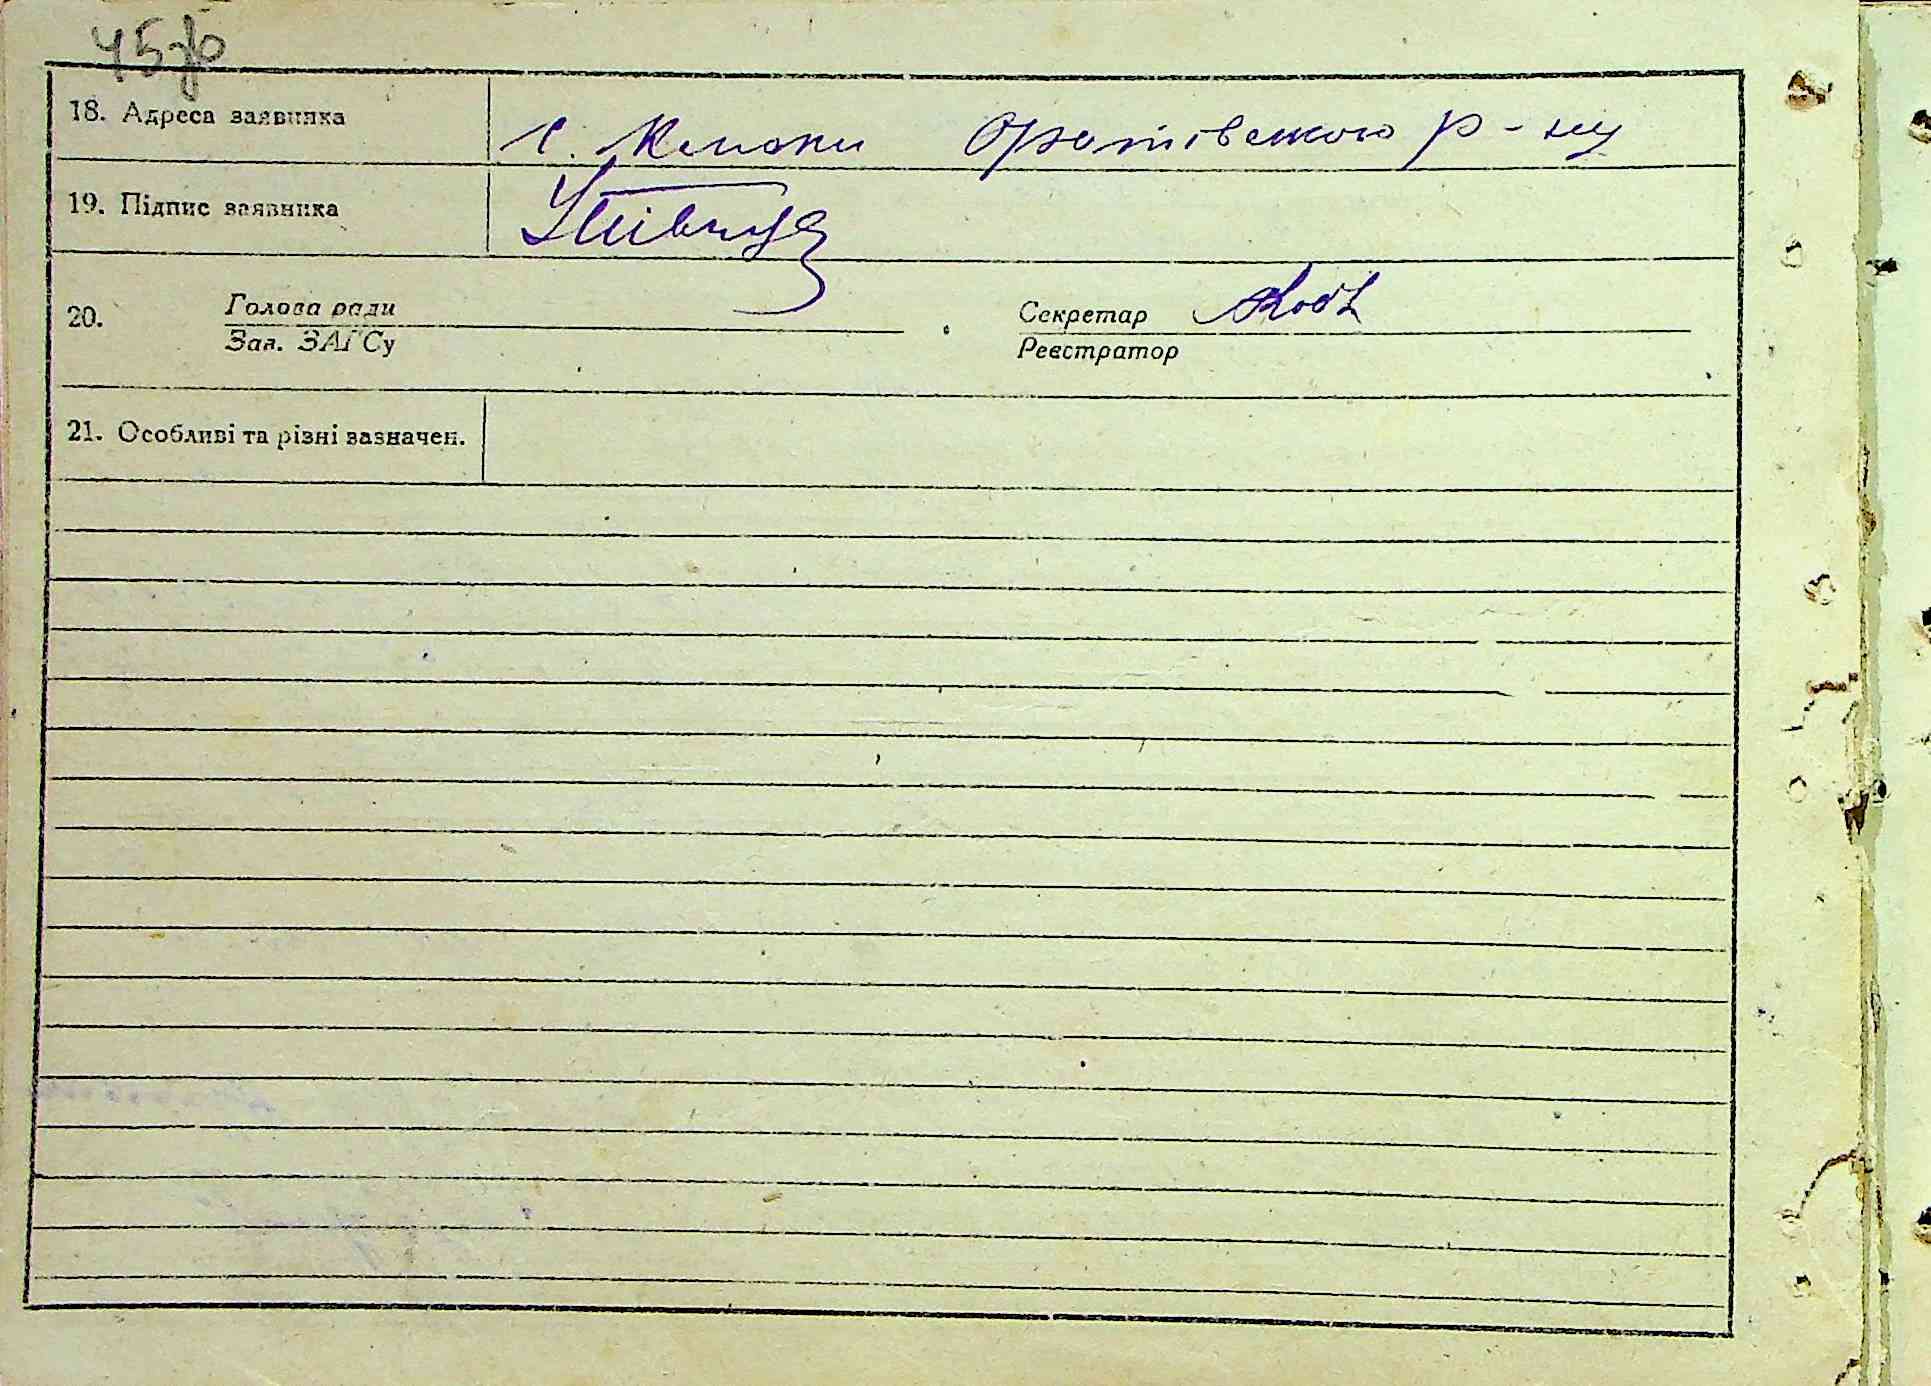 45зв
18. Адреса заявника с. Клюки Оратівського р-ну
19. Підпис заявника
20. Голова ради Секретар
Зав. ЗАГСу Реєстратор
21. Особливі та різні зазначен.